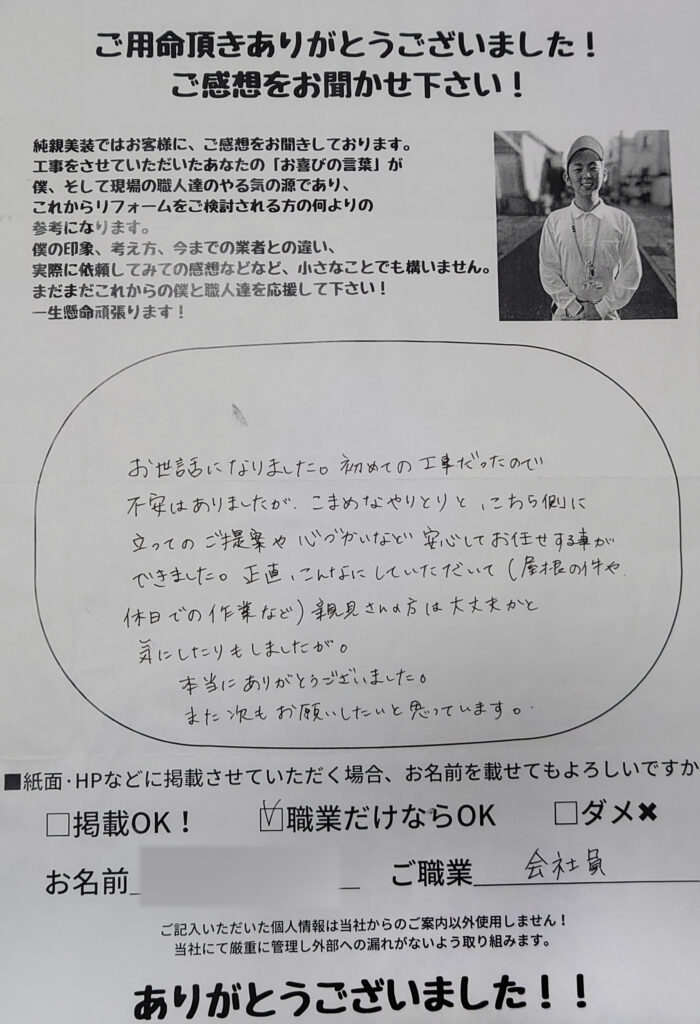 ご用命頂きありがとうございました！
ご感想をお聞かせ下さい！
純親美装ではお客様に、ご感想をお聞きしております。
工事をさせていただいたあなたの「お喜びの言葉」が
僕、そして現場の職人達のやる気の源であり、
これからリフォームをご検討される方の何よりの
参考になります。
僕の印象、考え方、今までの業者との違い、
実際に依頼してみての感想などなど、小さなことでも構いません。
まだまだこれからの僕と職人達を応援して下さい！
一生懸命頑張ります！
お世話になりました。初めての工事だったので
不安はありましたが、こまめなやりとりと、こちら側に
立ってのご提案や心づかいなど安心してお任せする事が
できました。正直、こんなにしていただいて（屋根の件や
休日での作業など）親見さんの方は大丈夫かと
気にしたりもしましたが。
本当にありがとうございました。
また次もお願いしたいと思っています。
■紙面・HPなどに掲載させていただく場合、お名前を載せてもよろしいですか
□掲載OK！ ☑職業だけならOK □ダメ✖
お名前 ご職業 会社員
ご記入いただいた個人情報は当社からのご案内以外使用しません！
当社にて厳重に管理し外部への漏れがないよう取り組みます。
ありがとうございました！！